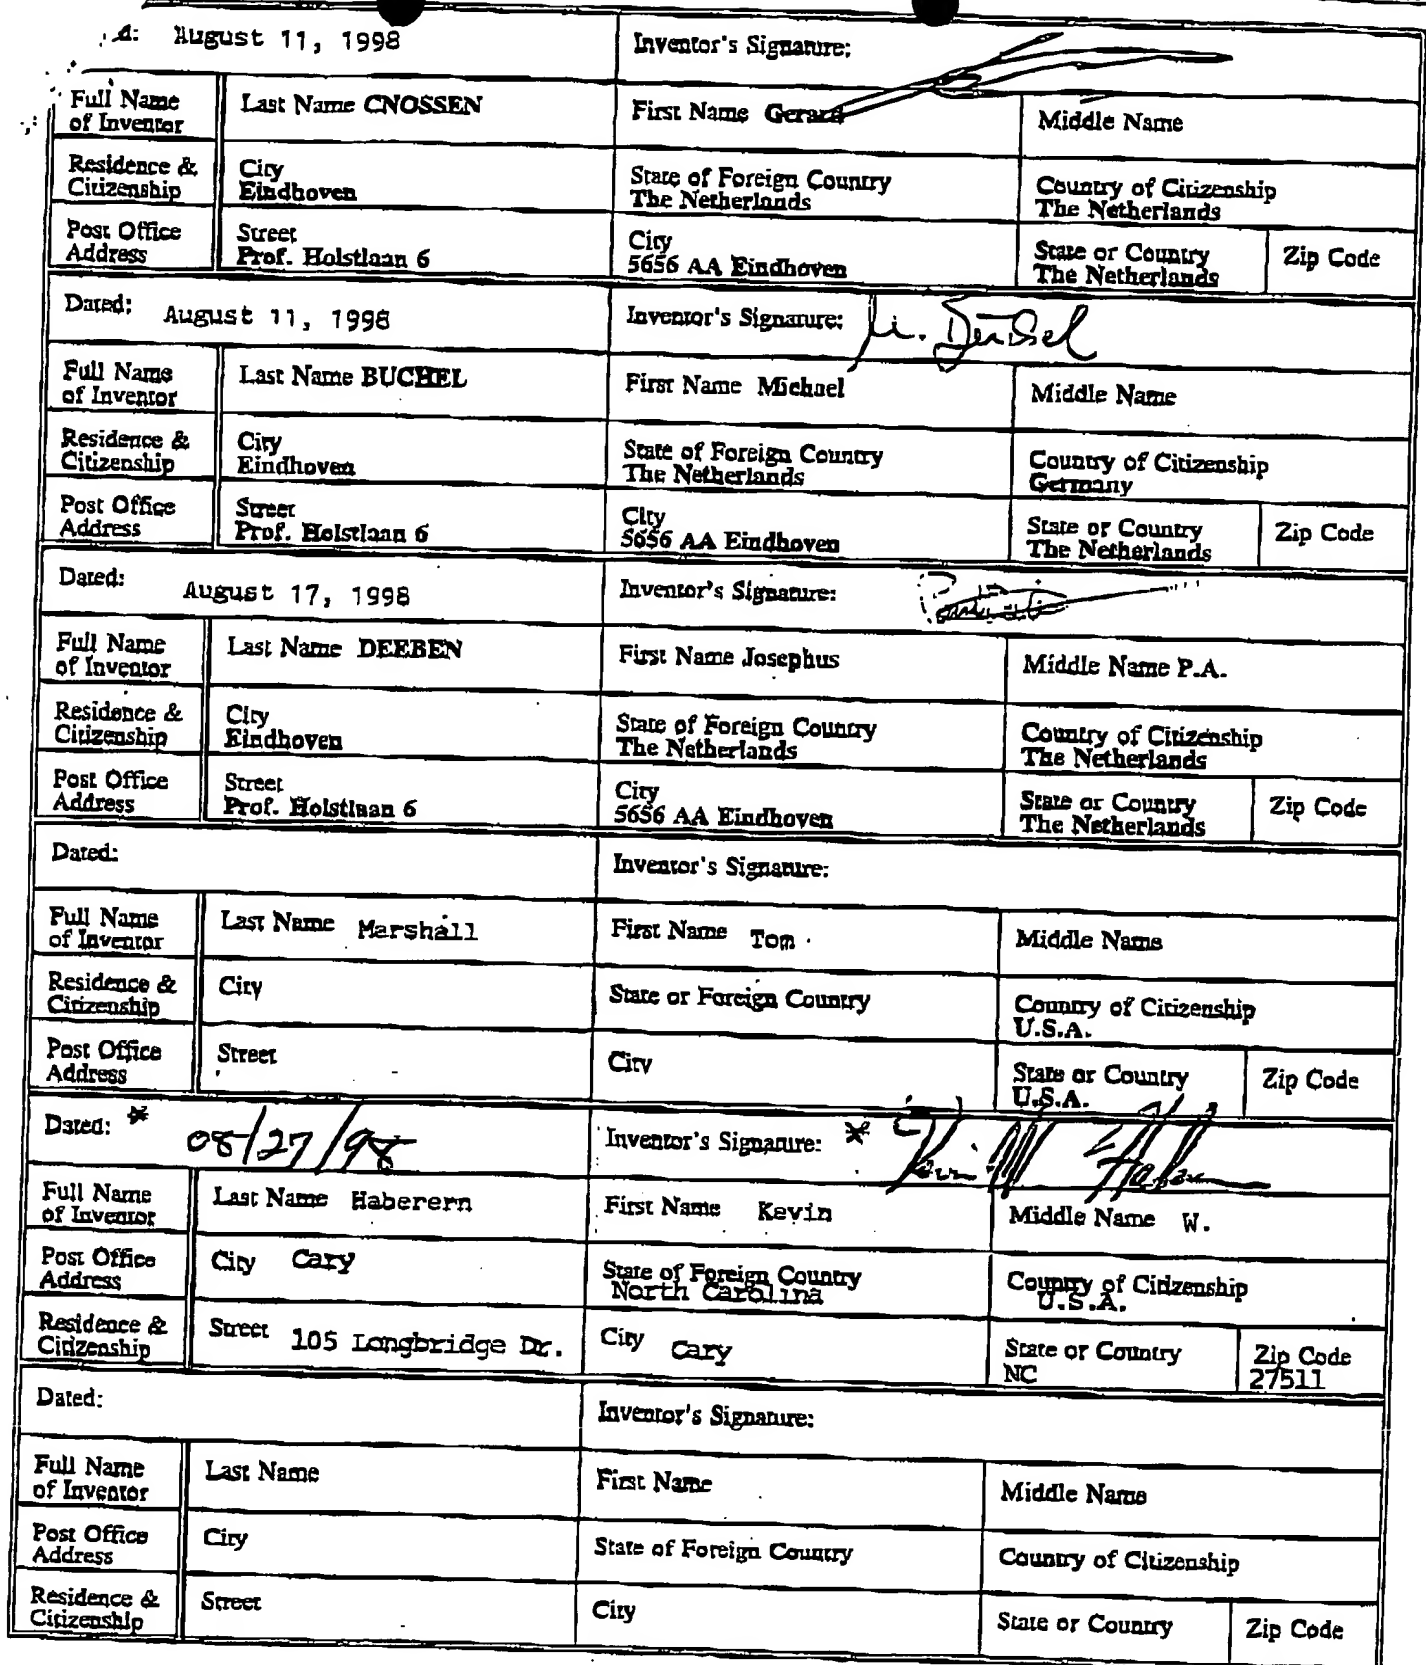 d: August 11, 1998 Inventor's Signature:
Full Name of Inventor Last Name CNOSSEN First Name Gerard Middle Name
Residence & Citizenship City Eindhoven State of Foreign Country The Netherlands Country of Citizenship The Netherlands
Post Office Address Street Prof. Holstlaan 6 City 5656 AA Eindhoven State or Country The Netherlands Zip Code
Dated: August 11, 1998 Inventor's Signature:
Full Name of Inventor Last Name BUCHEL First Name Michael Middle Name
Residence & Citizenship City Eindhoven State of Foreign Country The Netherlands Country of Citizenship Germany
Post Office Address Street Prof. Holstlaan 6 City 5656 AA Eindhoven State or Country The Netherlands Zip Code
Dated: August 17, 1998 Inventor's Signature:
Full Name of Inventor Last Name DEEBEN First Name Josephus Middle Name P.A.
Residence & Citizenship City Eindhoven State of Foreign Country The Netherlands Country of Citizenship The Netherlands
Post Office Address Street Prof. Holstlaan 6 City 5656 AA Eindhoven State or Country The Netherlands Zip Code
Dated: Inventor's Signature:
Full Name of Inventor Last Name Marshall First Name Tom Middle Name
Residence & Citizenship City State or Foreign Country Country of Citizenship U.S.A.
Post Office Address Street City State or Country U.S.A. Zip Code
Dated: * 08/27/98 Inventor's Signature: *
Full Name of Inventor Last Name Haberern First Name Kevin Middle Name W.
Post Office Address City Cary State of Foreign Country North Carolina Country of Citizenship U.S.A.
Residence & Citizenship Street 105 Longbridge Dr. City Cary State or Country NC Zip Code 27511
Dated: Inventor's Signature:
Full Name of Inventor Last Name First Name Middle Name
Post Office Address City State of Foreign Country Country of Citizenship
Residence & Citizenship Street City State or Country Zip Code